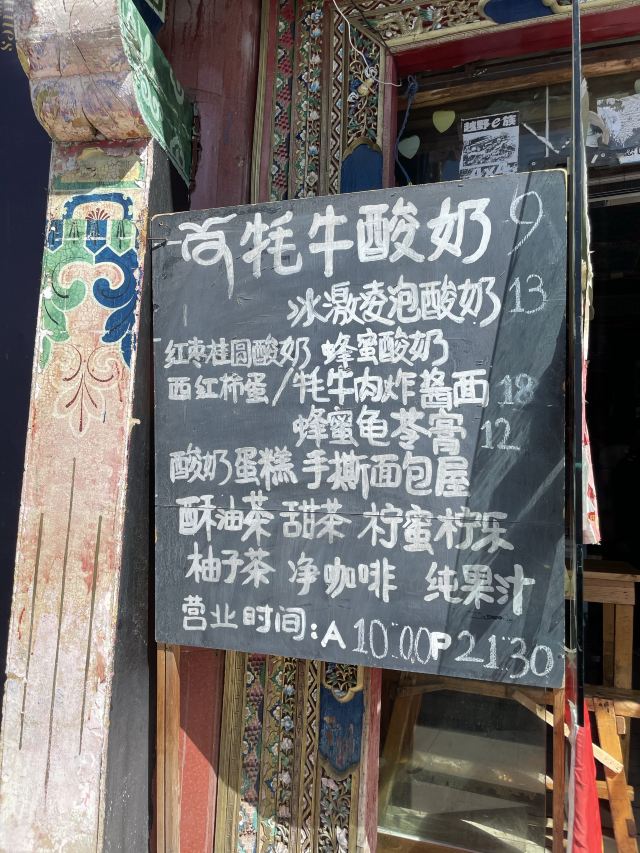 牦牛酸奶 9
冰激凌泡酸奶 13
红枣桂圆酸奶 蜂蜜酸奶
西红柿蛋/牦牛肉炸酱面 18
蜂蜜龟苓膏 12
酸奶蛋糕 手撕面包屋
酥油茶 甜茶 柠蜜柠乐
柚子茶 净咖啡 纯果汁
营业时间:A 10:00P 21:30
越野e族